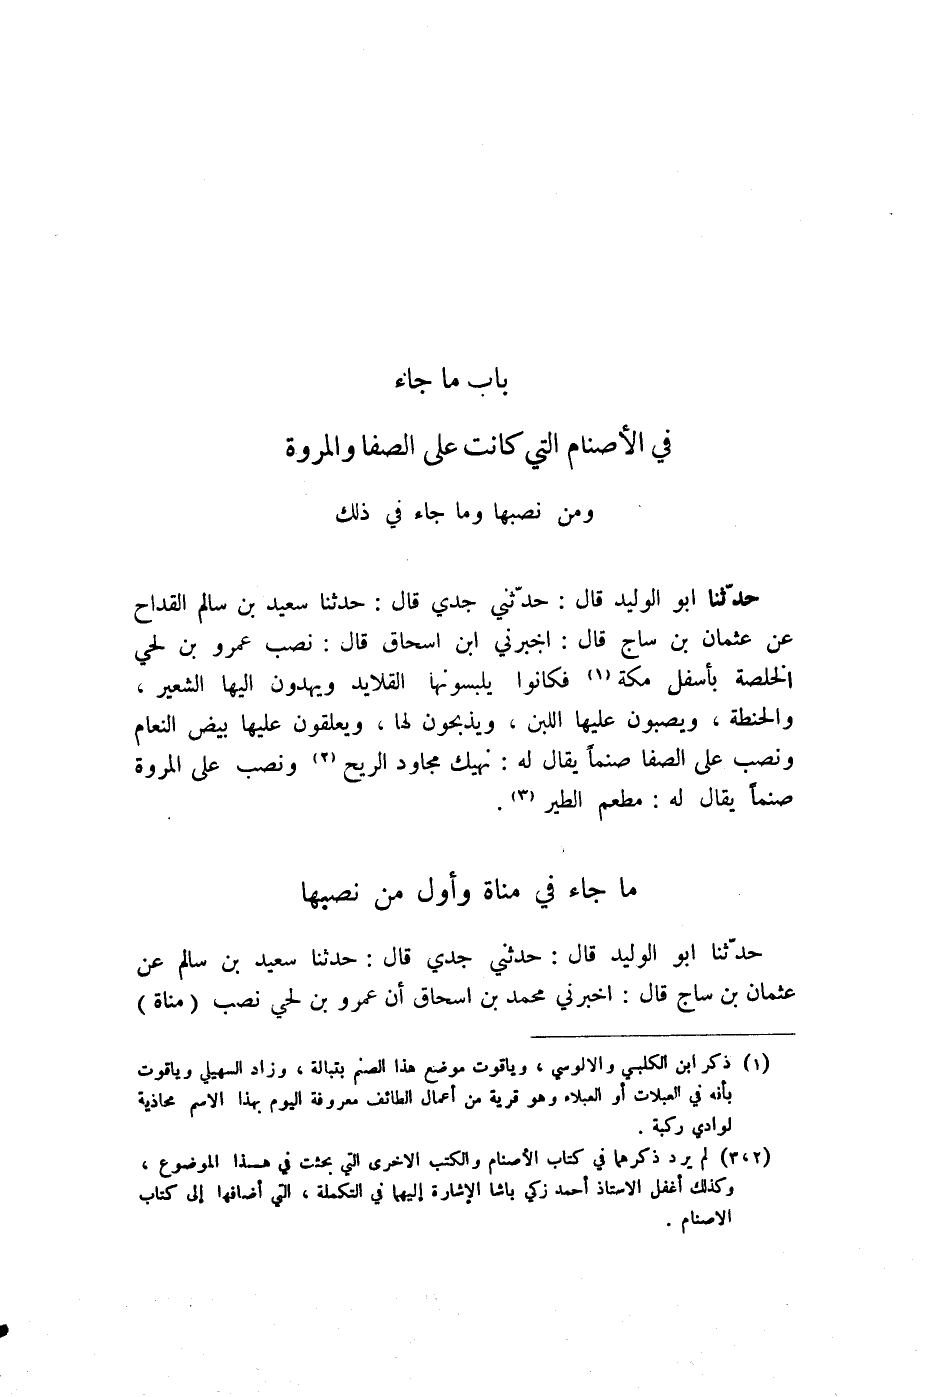 باب ما جاء
في الأصنام التي كانت على الصفا والمروة
ومن نصبها وما جاء في ذلك
حدّثنا ابو الوليد قال : حدّثني جدي قال : حدثنا سعيد بن سالم القداح
عن عثمان بن ساج قال : اخبرني ابن اسحاق قال : نصب عمرو بن لحي
الخلصة بأسفل مكة (١) فكانوا يلبسونها القلايد ويهدون اليها الشعير ،
والحنطة ، ويصبون عليها اللبن ، ويذبحون لها ، ويعلقون عليها بيض النعام
ونصب على الصفا صنماً يقال له : نهيك مجاود الريح (٢) ونصب على المروة
صنماً يقال له : مطعم الطير (٣) .
ما جاء في مناة وأول من نصبها
حدّثنا ابو الوليد قال : حدثني جدي قال : حدثنا سعيد بن سالم عن
عثمان بن ساج قال : اخبرني محمد بن اسحاق أن عمرو بن لحي نصب ( مناة )
(١) ذكر ابن الكلبي والالوسي ، وياقوت موضع هذا الصنم بتبالة ، وزاد السهيلي وياقوت
بأنه في العبلات أو العبلاء وهو قرية من أعمال الطائف معروفة اليوم بهذا الاسم محاذية
لوادي ركبة .
(٢،٣) لم يرد ذكرهما في كتاب الأصنام والكتب الاخرى التي بحثت في هذا الموضوع ،
وكذلك أغفل الاستاذ أحمد زكي باشا الإشارة إليهما في التكملة ، التي أضافها إلى كتاب
الاصنام .